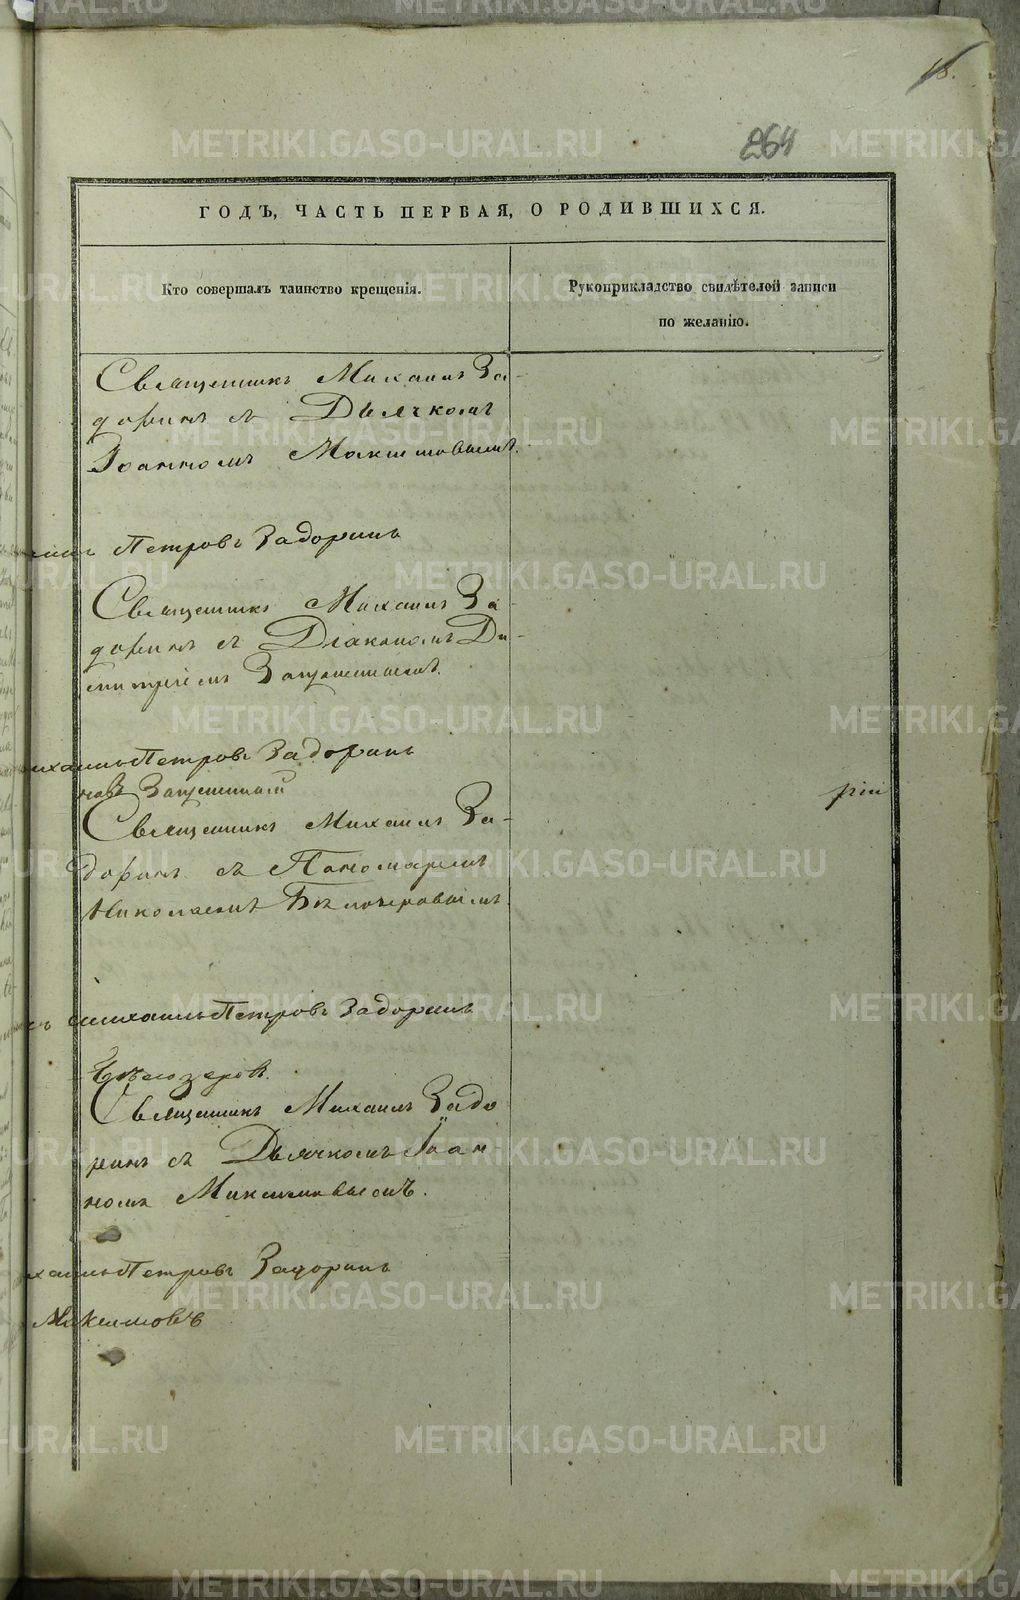 18.
264
ГОДЪ, ЧАСТЬ ПЕРВАЯ, О РОДИВШИХСЯ.
Кто совершалъ таинство крещенія.
Рукоприкладство свидѣтелей записи
по желанію.
Священникъ Михаилъ За-
доринъ съ Дьячкомъ
Іоанномъ Максимовымъ.
Петровъ Задоринъ
Священникъ Михаилъ За-
доринъ съ Діакономъ Ди-
митріемъ
Михаилъ Петровъ Задоринъ
Священникъ Михаилъ За-
доринъ съ Пономаремъ
Николаемъ Бѣлозеровымъ.
Михаилъ Петровъ Задоринъ
Бѣлозеровъ.
Священникъ Михаилъ Задо
ринъ съ Дьячкомъ Іоан
номъ Максимовымъ.
хаилъ Петровъ Задоринъ
Максимовъ
рій
METRIKI.GASO-URAL.RU